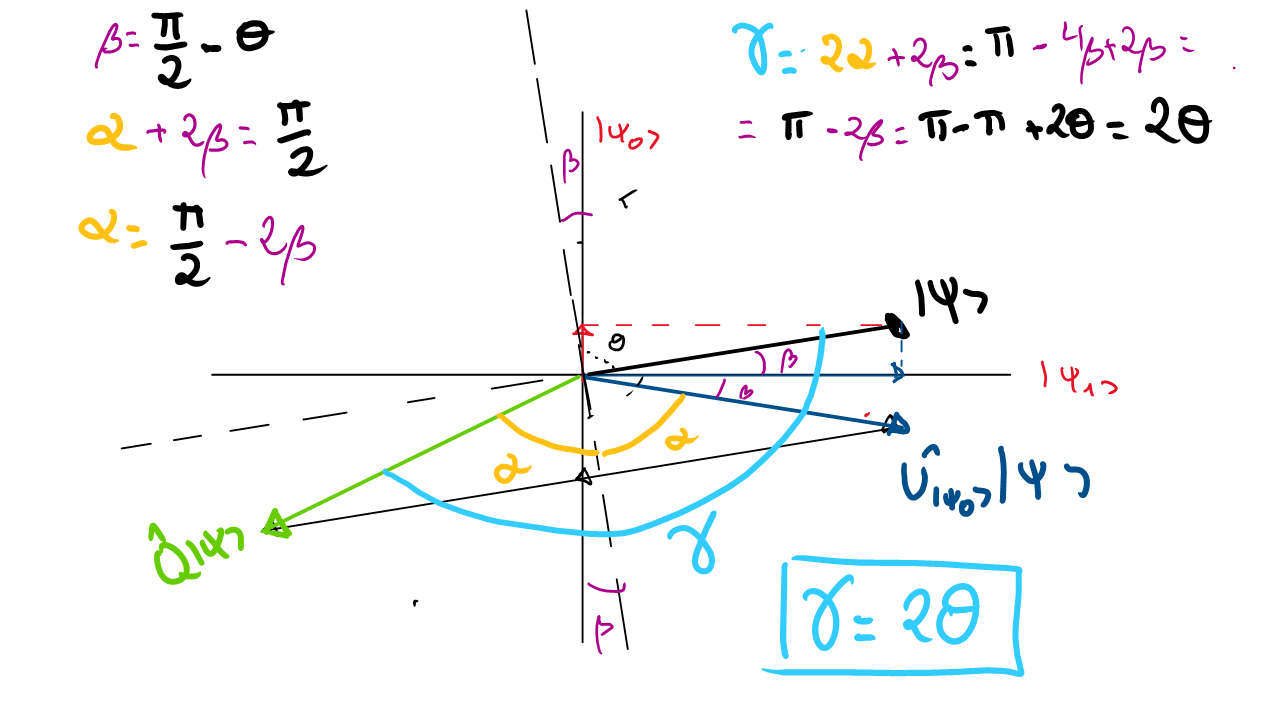 β = π/2 - θ
α + 2β = π/2
α = π/2 - 2β
γ = 2α + 2β = π - 4β + 2β =
= π - 2β = π - π + 2θ = 2θ
|ψ₀>
β
θ
|ψ>
β
|ψ₁>
β
α
α
Û|ψ₀>|ψ>
Q̂|ψ>
γ
β
γ = 2θ